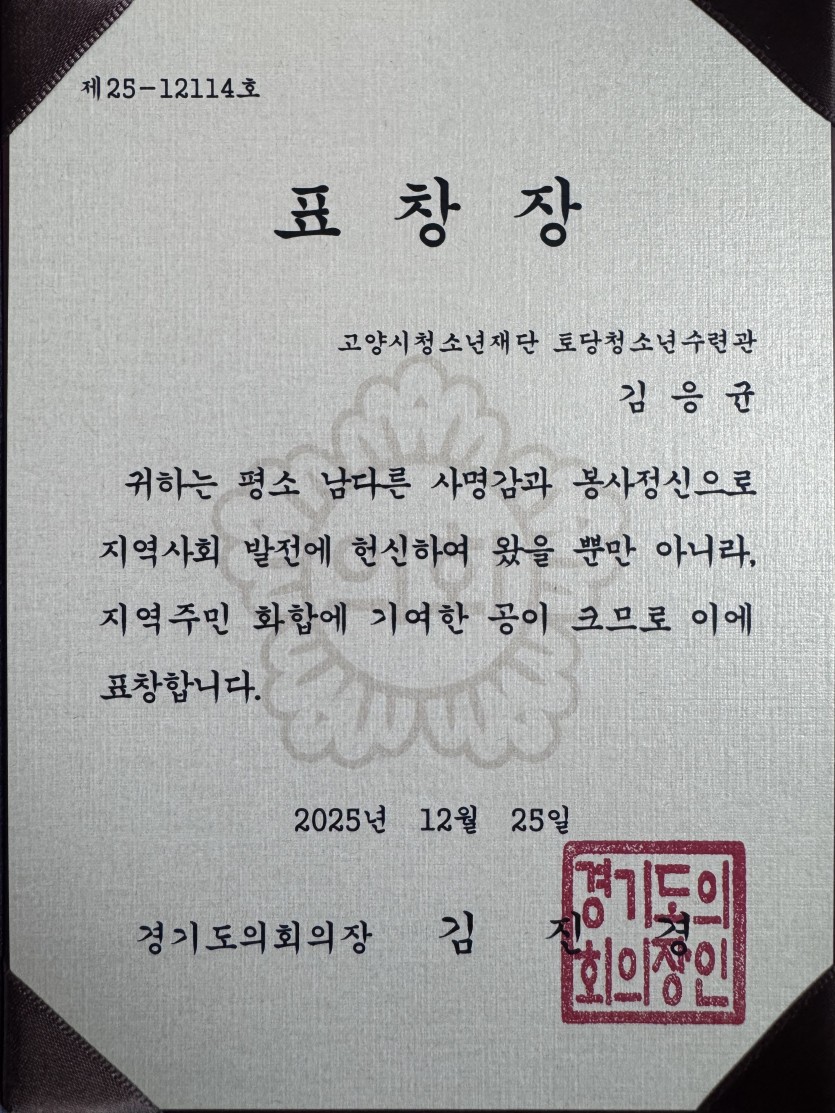 제25-12114호
표 창 장
고양시청소년재단 토당청소년수련관
김 응 균
귀하는 평소 남다른 사명감과 봉사정신으로
지역사회 발전에 헌신하여 왔을 뿐만 아니라,
지역주민 화합에 기여한 공이 크므로 이에
표창합니다.
2025년 12월 25일
경기도의회의장 김 진 경
경기도의
회의장인
의회